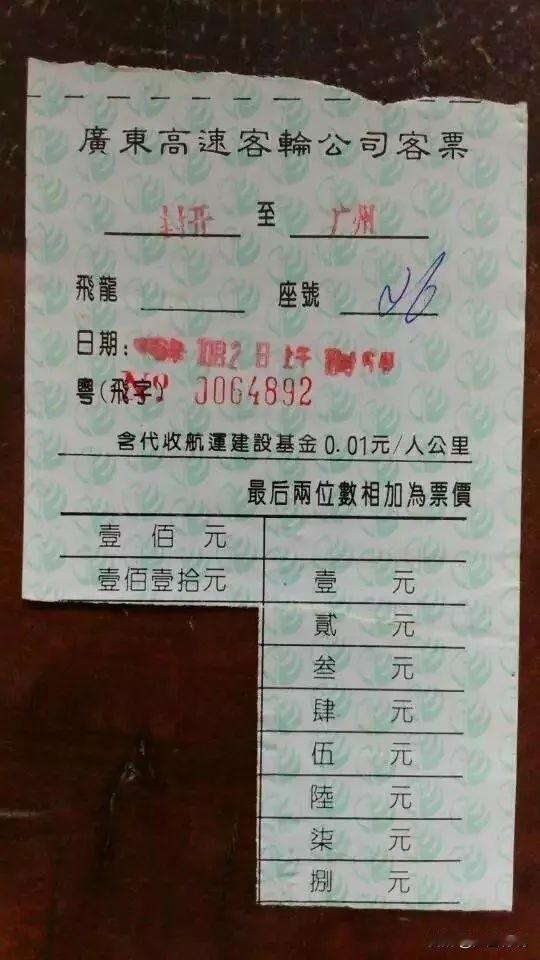 廣東高速客輪公司客票
封开 至 广州
飛龍 座號 26
日期: 10月2日上午
粤(飛字) № 0064892
含代收航運建設基金0.01元/人公里
最后兩位數相加為票價
壹佰元
壹佰壹拾元 壹元
貳元
叁元
肆元
伍元
陸元
柒元
捌元